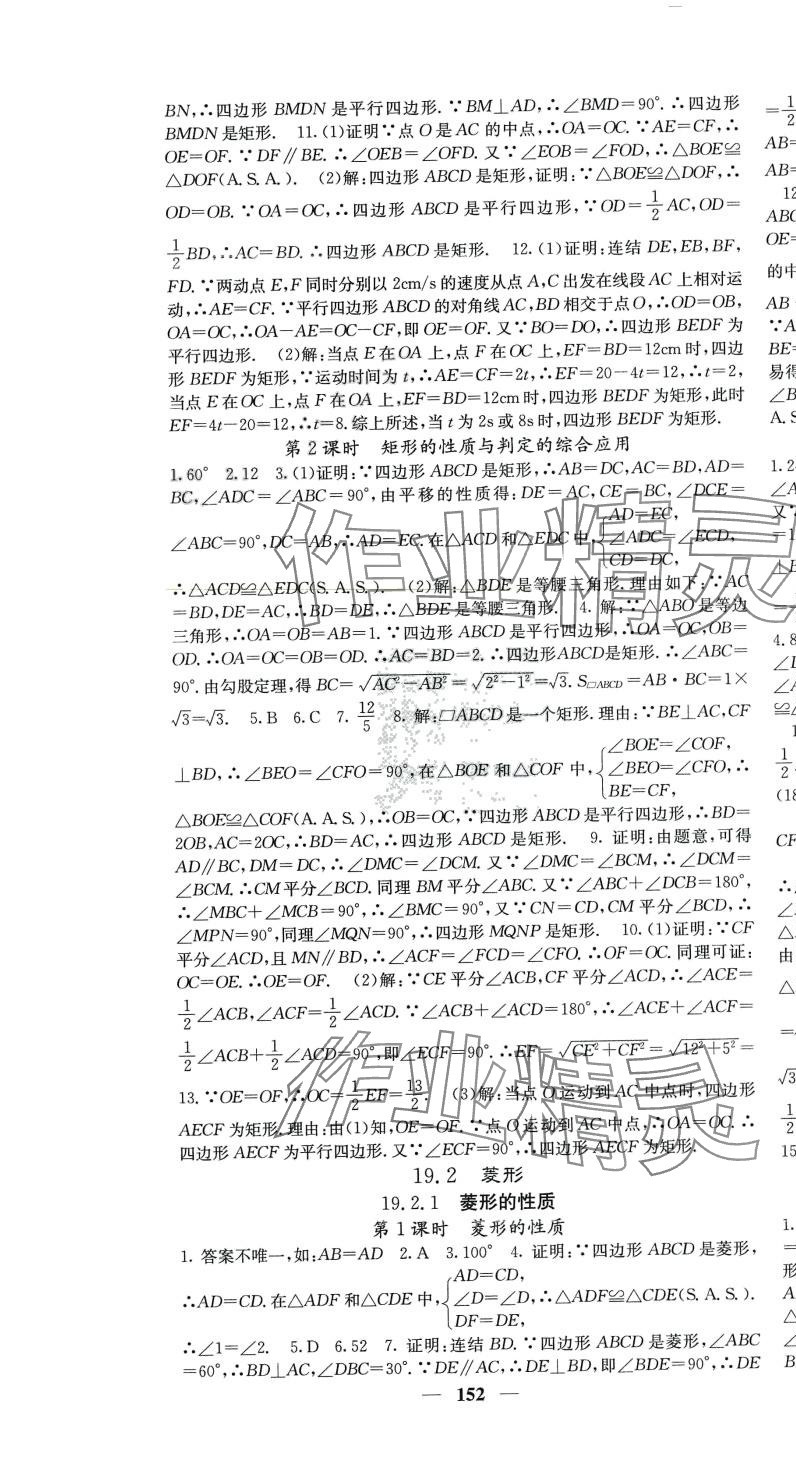 BN,∴四边形 BMDN 是平行四边形.∵BM⊥AD,∴∠BMD=90°.∴四边形
BMDN 是矩形. 11.(1)证明∵点 O 是 AC 的中点,∴OA=OC.∵AE=CF,∴
OE=OF.∵DF∥BE.∴∠OEB=∠OFD.又∵∠EOB=∠FOD,∴△BOE≌
△DOF(A.S.A.). (2)解:四边形 ABCD 是矩形,证明:∵△BOE≌△DOF,∴
OD=OB.∵OA=OC,∴四边形 ABCD 是平行四边形,∵OD=1/2 AC,OD=
1/2 BD,∴AC=BD.∴四边形 ABCD 是矩形. 12.(1)证明:连结 DE,EB,BF,
FD.∵两动点 E,F 同时分别以 2cm/s 的速度从点 A,C 出发在线段 AC 上相对运
动,∴AE=CF.∵平行四边形 ABCD 的对角线 AC,BD 相交于点 O,∴OD=OB,
OA=OC,∴OA-AE=OC-CF,即 OE=OF.又∵BO=DO,∴四边形 BEDF 为
平行四边形. (2)解:当点 E 在 OA 上,点 F 在 OC 上,EF=BD=12cm 时,四边
形 BEDF 为矩形,∵运动时间为 t,∴AE=CF=2t,∴EF=20-4t=12,∴t=2,
当点 E 在 OC 上,点 F 在 OA 上,EF=BD=12cm 时,四边形 BEDF 为矩形,此时
EF=4t-20=12,∴t=8.综上所述,当 t 为 2s 或 8s 时,四边形 BEDF 为矩形.
第 2 课时 矩形的性质与判定的综合应用
1.60° 2.12 3.(1)证明:∵四边形 ABCD 是矩形,∴AB=DC,AC=BD,AD=
BC,∠ADC=∠ABC=90°,由平移的性质得:DE=AC,CE=BC,∠DCE=
∠ABC=90°,DC=AB,∴AD=EC.在△ACD 和△EDC 中,{AD=EC,
∠ADC=∠ECD,
CD=DC,
∴△ACD≌△EDC(S.A.S.). (2)解:△BDE 是等腰三角形.理由如下:∵AC
=BD,DE=AC,∴BD=DE,∴△BDE 是等腰三角形. 4. 解:∵△ABO 是等边
三角形,∴OA=OB=AB=1.∵四边形 ABCD 是平行四边形,∴OA=OC,OB=
OD.∴OA=OC=OB=OD.∴AC=BD=2.∴四边形ABCD是矩形.∴∠ABC=
90°.由勾股定理,得 BC=√(AC²-AB²)=√(2²-1²)=√3.S□ABCD=AB·BC=1×
√3=√3. 5.B 6.C 7. 12/5 8. 解:□ABCD 是一个矩形.理由:∵BE⊥AC,CF
⊥BD,∴∠BEO=∠CFO=90°,在△BOE 和△COF 中,{∠BOE=∠COF,
∠BEO=∠CFO,∴
BE=CF,
△BOE≌△COF(A.A.S.),∴OB=OC,∵四边形 ABCD 是平行四边形,∴BD=
2OB,AC=2OC,∴BD=AC,∴四边形 ABCD 是矩形. 9. 证明:由题意,可得
AD∥BC,DM=DC,∴∠DMC=∠DCM.又∵∠DMC=∠BCM,∴∠DCM=
∠BCM.∴CM 平分∠BCD.同理 BM 平分∠ABC.又∵∠ABC+∠DCB=180°,
∴∠MBC+∠MCB=90°,∴∠BMC=90°,又∵CN=CD,CM 平分∠BCD,∴
∠MPN=90°,同理∠MQN=90°,∴四边形 MQNP 是矩形. 10.(1)证明:∵CF
平分∠ACD,且 MN∥BD,∴∠ACF=∠FCD=∠CFO.∴OF=OC.同理可证:
OC=OE.∴OE=OF. (2)解:∵CE 平分∠ACB,CF 平分∠ACD,∴∠ACE=
1/2∠ACB,∠ACF=1/2∠ACD.∵∠ACB+∠ACD=180°,∴∠ACE+∠ACF=
1/2∠ACB+1/2∠ACD=90°,即∠ECF=90°.∴EF=√(CE²+CF²)=√(12²+5²)=
13.∵OE=OF,∴OC=1/2 EF=13/2. (3)解:当点 O 运动到 AC 中点时,四边形
AECF 为矩形.理由:由(1)知,OE=OF.∵点 O 运动到 AC 中点,∴OA=OC.∴
四边形 AECF 为平行四边形.又∵∠ECF=90°,∴四边形 AECF 为矩形.
19.2 菱形
19.2.1 菱形的性质
第 1 课时 菱形的性质
1. 答案不唯一,如:AB=AD 2.A 3.100° 4. 证明:∵四边形 ABCD 是菱形,
∴AD=CD.在△ADF 和△CDE 中,{AD=CD,
∠D=∠D,∴△ADF≌△CDE(S.A.S.).
DF=DE,
∴∠1=∠2. 5.D 6.52 7. 证明:连结 BD.∵四边形 ABCD 是菱形,∠ABC
=60°,∴BD⊥AC,∠DBC=30°.∵DE∥AC,∴DE⊥BD,即∠BDE=90°,∴DE
— 152 —
作业精灵
作业精灵